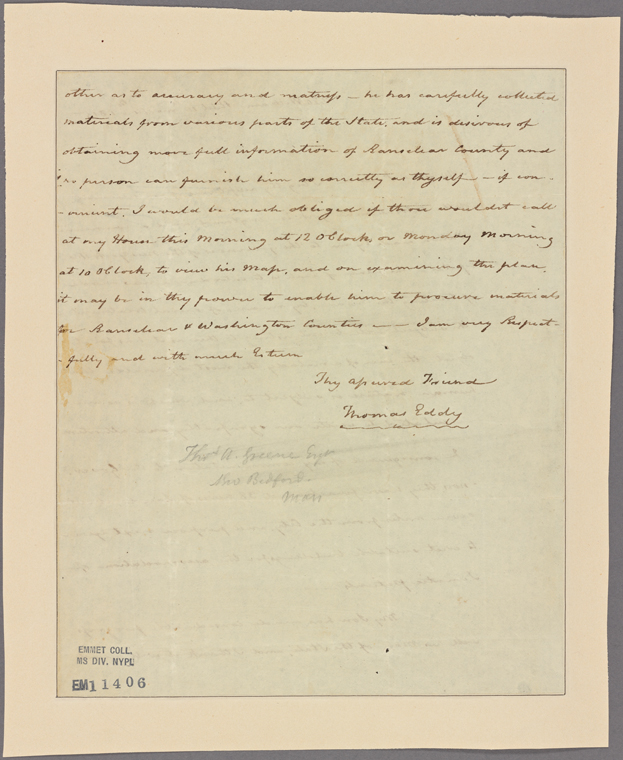 other as to accuracy and neatness – he has carefully collected
materials from various parts of the State, and is desirous of
obtaining more full information of Ransclear County and
no person can furnish him so correctly as thyself – if con-
-venient, I would be much obliged if thou wouldst call
at my House this Morning at 12 OClock, or Monday Morning
at 10 OClock, to view his Map, and on examining the plan,
it may be in thy power to enable him to procure materials
for Ransclear & Washington Counties – – I am very Respect-
-fully and with much Esteem
Thy assured Friend
Thomas Eddy
Thos A. Greene Esqr
New Bedford.
Mass
EMMET COLL.
MS DIV. NYPL
EM11406